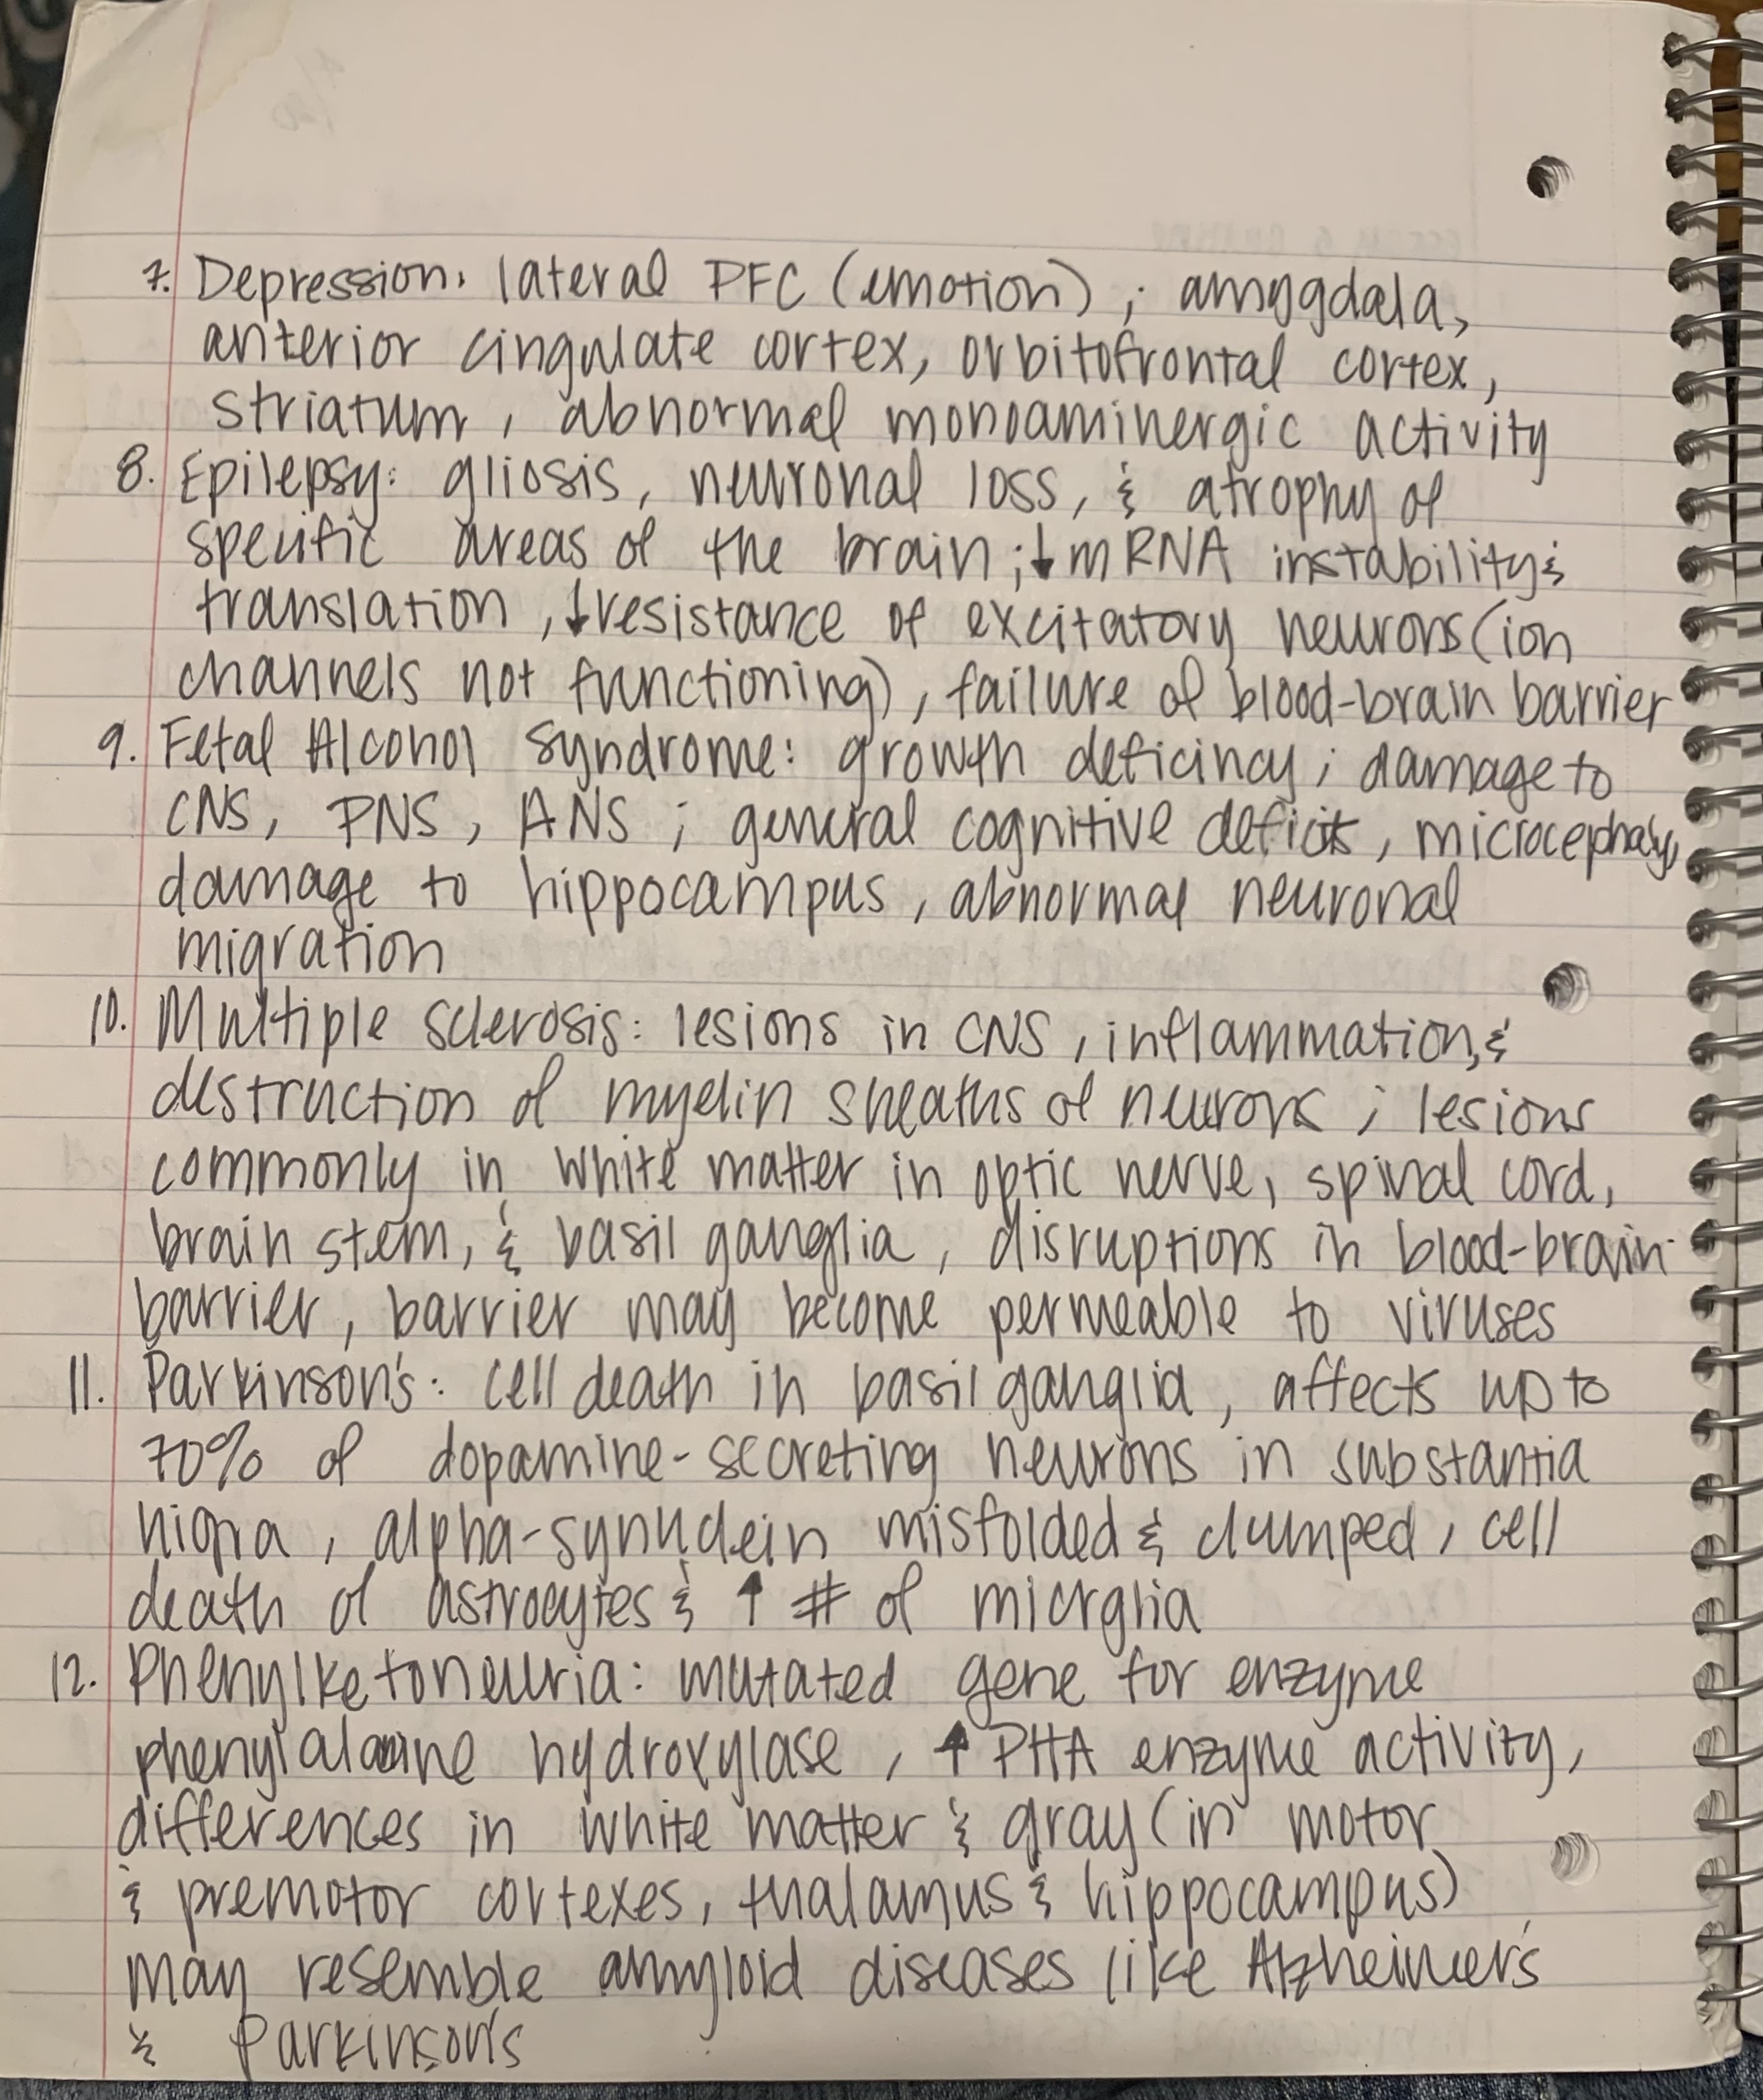 7. Depression: lateral PFC (emotion); amygdala,
anterior cingulate cortex, orbitofrontal cortex,
striatum, abnormal monoaminergic activity
8. Epilepsy: gliosis, neuronal loss, & atrophy of
specific areas of the brain; ↓ mRNA instability &
translation, ↓ resistance of excitatory neurons (ion
channels not functioning), failure of blood-brain barrier
9. Fetal Alcohol Syndrome: growth deficincy; damage to
CNS, PNS, ANS; general cognitive deficits, microcephaly,
damage to hippocampus, abnormal neuronal
migration
10. Multiple sclerosis: lesions in CNS, inflammation, &
destruction of myelin sheaths of neurons; lesions
commonly in white matter in optic nerve, spinal cord,
brain stem, & basil ganglia, disruptions in blood-brain-
barrier, barrier may become permeable to viruses
11. Parkinson's: cell death in basil ganglia, affects up to
70% of dopamine-secreting neurons in substantia
nigra, alpha-synuclein misfolded & clumped, cell
death of astrocytes & ↑ # of micrglia
12. Phenylketoneuria: mutated gene for enzyme
phenylalanine hydroxylase, ↑ PHA enzyme activity,
differences in white matter & gray (in motor
& premotor cortexes, thalamus & hippocampus)
may resemble amyloid diseases like Alzheimer's
& Parkinson's